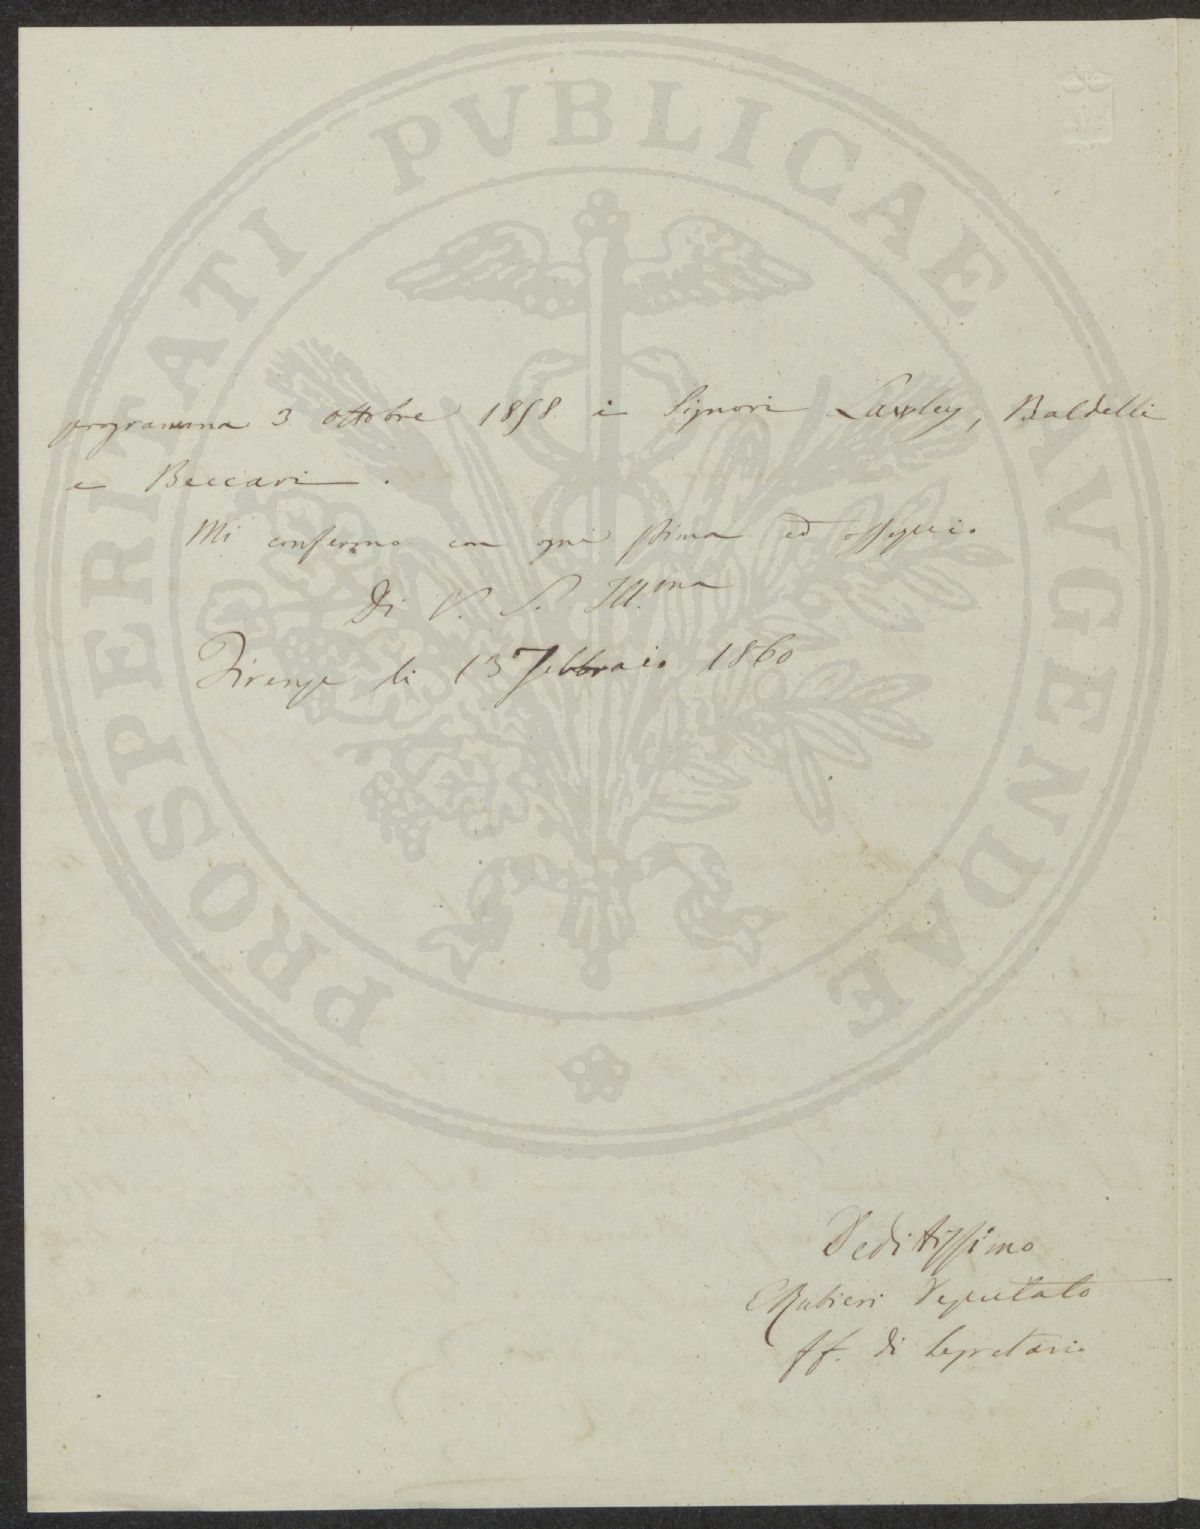 PROSPERITATI PUBLICAE AUGENDAE
programma 3 ottobre 1858 i Signori Lawley, Baldelli
e Beccari.
Mi confermo con ogni stima ed ossequio
Di V. S. Ill.ma
Firenze li 13 Febbraio 1860
Deditissimo
E Rubieri Deputato
ff. di Segretario